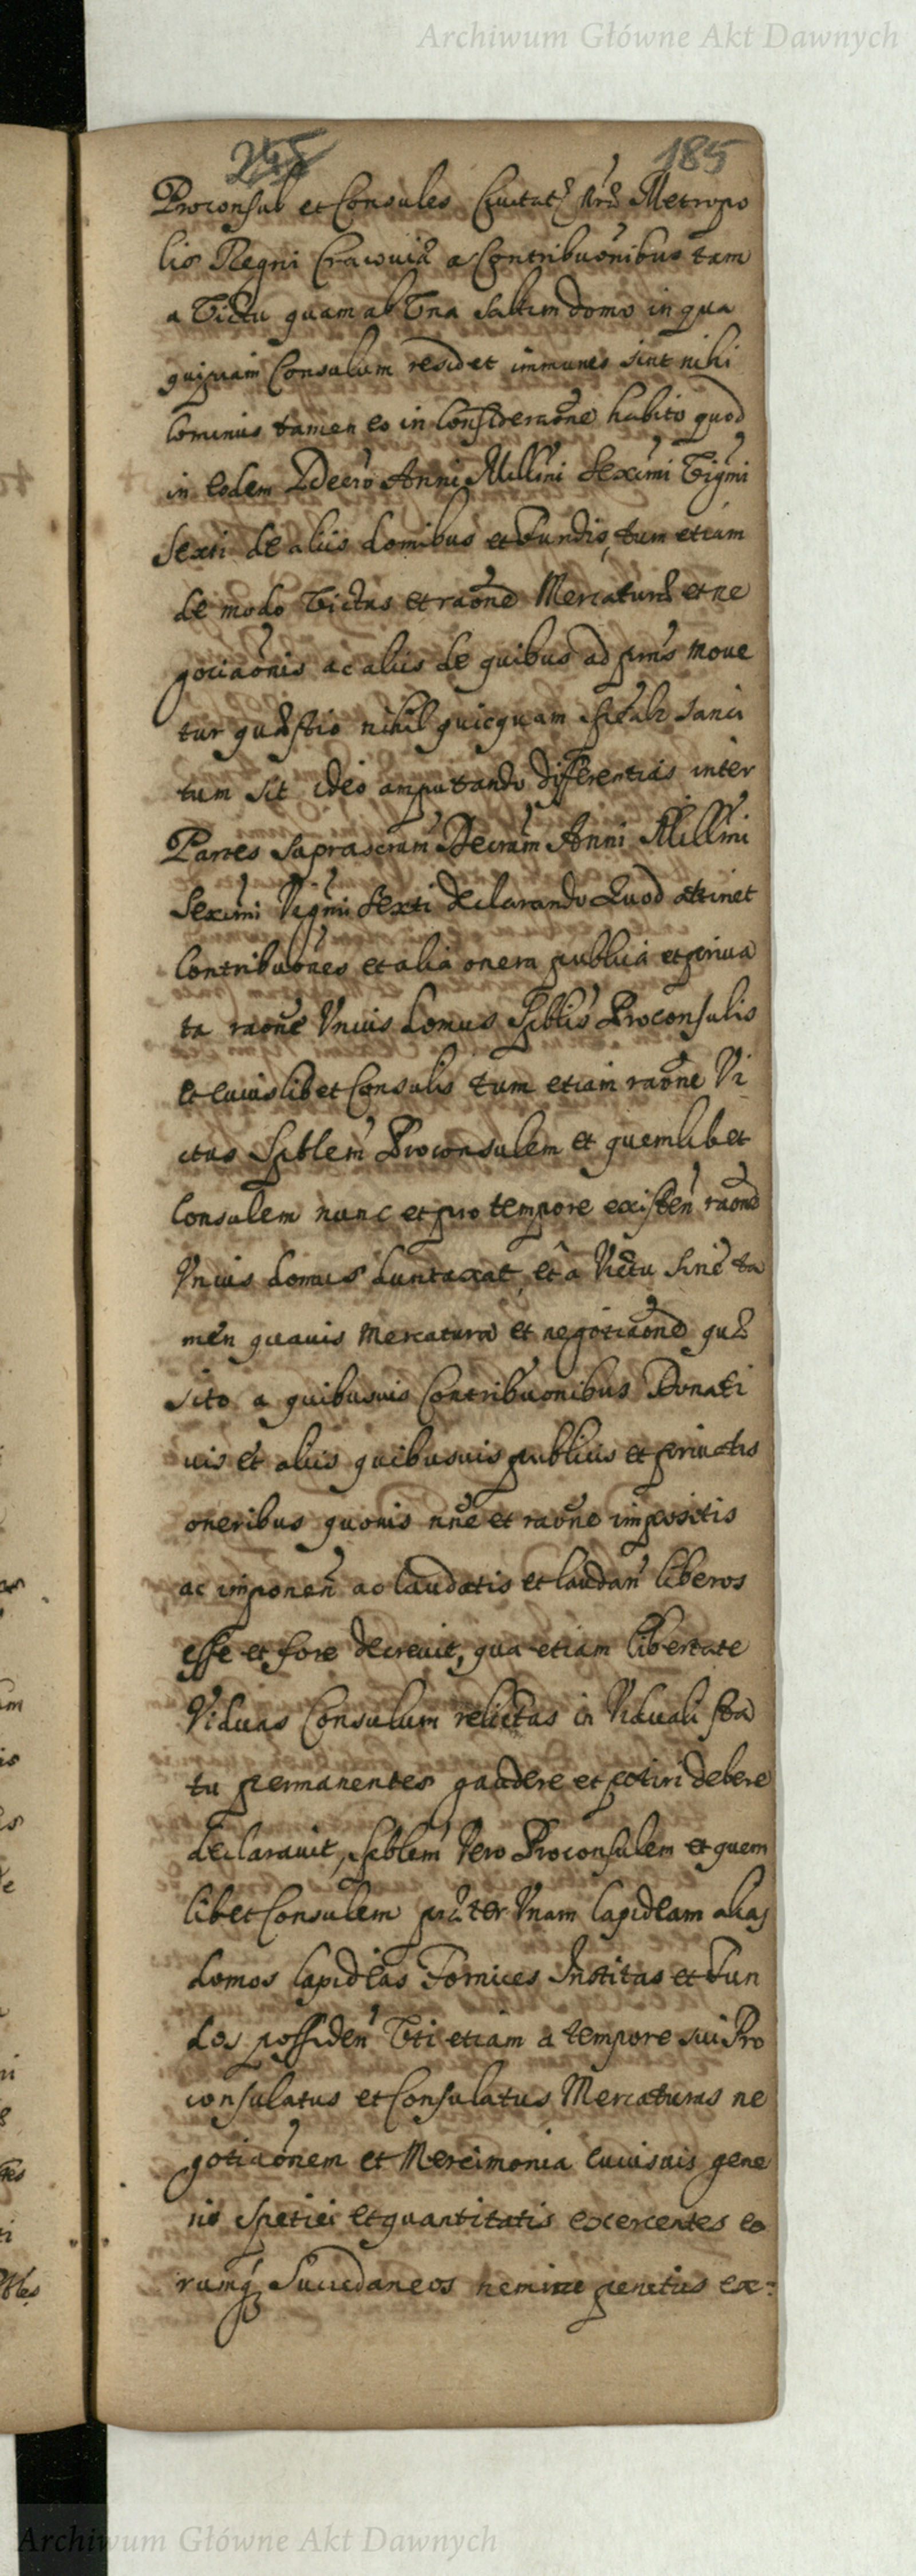 Archiwum Główne Akt Dawnych
245 185
Proconsul et Consules Civitatis Nrae Metropo
lis Regni Cracoviae a Contribuonibus tam
a Victu quam ab Una saltim domo in qua
quispiam Consulum residet immunes sint nihi
lominus tamen eo in consideraone habito quod
in eodem Decro Anni Millmi Sexcmi Vigmi
Sexti de aliis domibus et Fundis, tum etiam
de modo Victus et raone Mercaturae et ne
gociaonis ac aliis de quibus ad pns move
tur quaestio nihil quicquam spealr sanci
tum sit ideo amputando differentias inter
Partes suprascrum Decrum Anni Millmi
Sexcmi Vigmi Sexti declarando Quod attinet
Contribuones et alia onera publica et priva
ta raone Unius domus Spblis Proconsulis
et cuiuslibet Consulis tum etiam raone Vi
ctus Spblem Proconsulem et quemlibet
Consulem nunc et pro tempore existen raone
Unius domus duntaxat, et a Victu sine ta
men quavis Mercatura et negotiaone quae
sito a quibusvis Contribuonibus Donati
vis et aliis quibusvis publicis et privatis
oneribus quovis nne et raone impositis
ac imponen ac laudatis et laudan liberos
esse et fore decrevit, qua etiam libertate
Viduas Consulum relictas in Viduali sta
tu permanentes gaudere et potiri debere
declaravit, Spblem Vero Proconsulem et quem
libet Consulem praeter Unam lapideam alias
domos lapideas Fornices Institas et Fun
dos possiden Uti etiam a tempore sui Pro
consulatus et Consulatus Mercaturas ne
gotiaonem et Mercimonia cuiusvis gene
ris spetiei et quantitatis exercentes eo
rumq Succedaneos nemine penitus ex:
Archiwum Główne Akt Dawnych